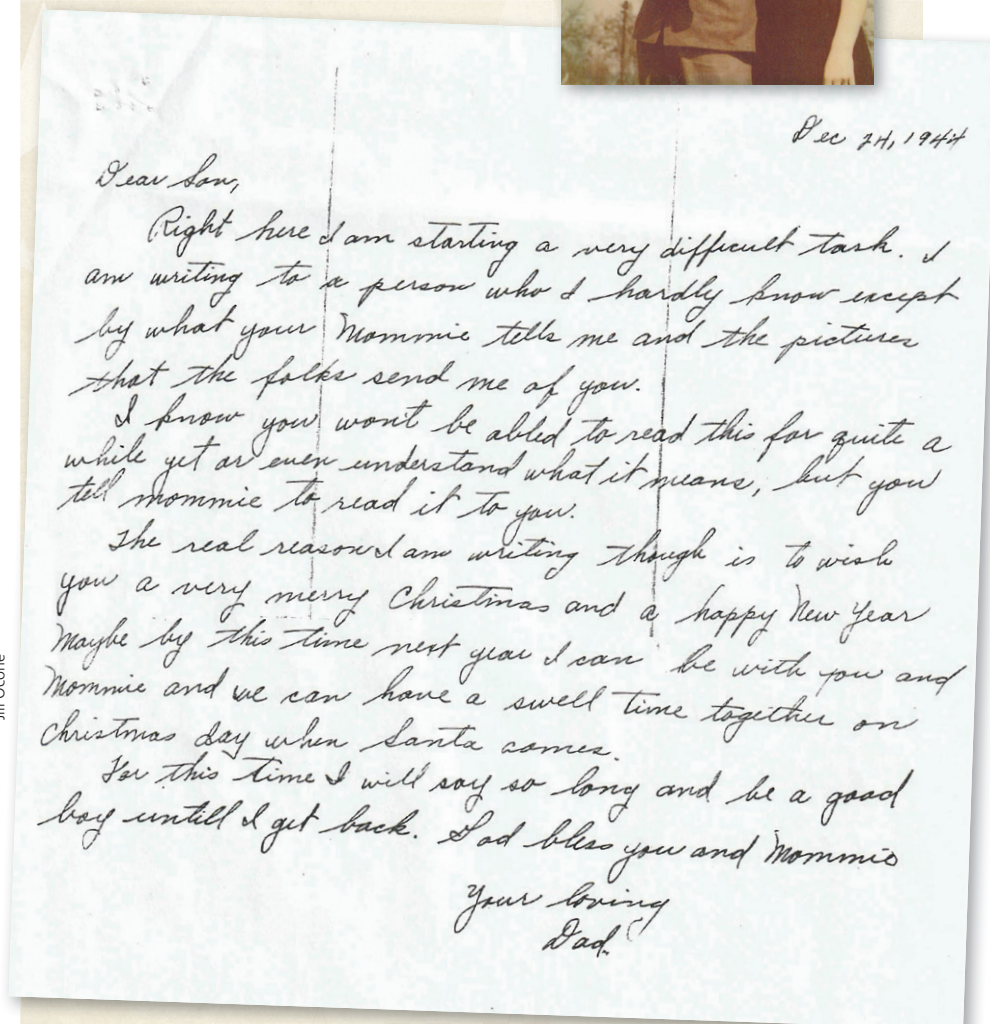 Dec 24, 1944
Dear Son,
Right here I am starting a very difficult task. I
am writing to a person who I hardly know except
by what your Mommie tells me and the pictures
that the folks send me of you.
I know you won't be abled to read this for quite a
while yet or even understand what it means, but you
tell mommie to read it to you.
The real reason I am writing though is to wish
you a very merry Christmas and a happy New Year
Maybe by this time next year I can be with you and
Mommie and we can have a swell time together on
Christmas day when Santa comes.
For this time I will say so long and be a good
boy untill I get back. God bless you and Mommie
Your loving
Dad.
Jill Ocone